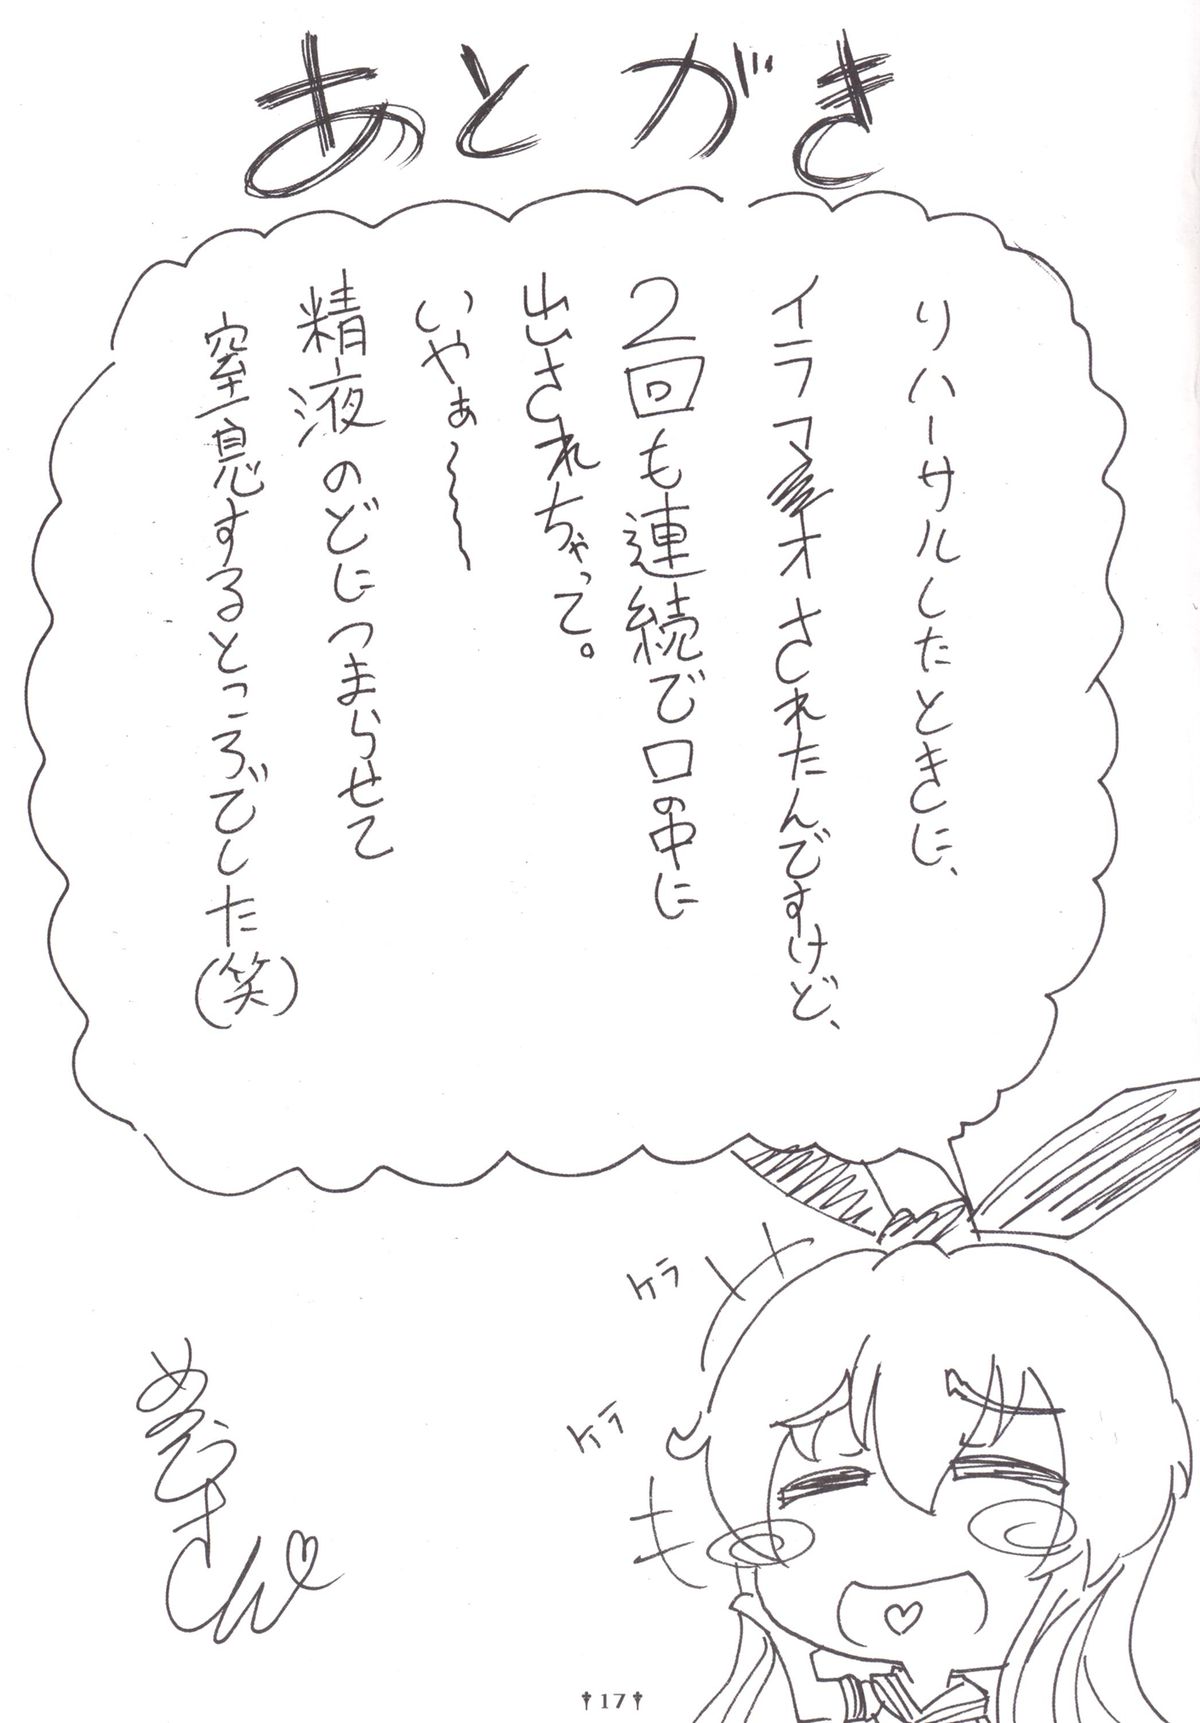 あとがき
リハーサルしたときに、
イラマオされたんですけど、
2回も連続で口の中に
出されちゃって。
いやぁ〜
精液のどにつまらせて
窒息するところでした(笑)
ケラ
ケラ
17